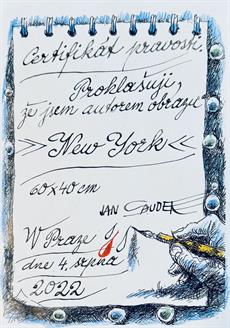 Certifikát pravosti,
Proklašuji,
že jsem autorem obrazu
»New York«
60x40cm
JAN
W Praze
dne 4. srpna
2022